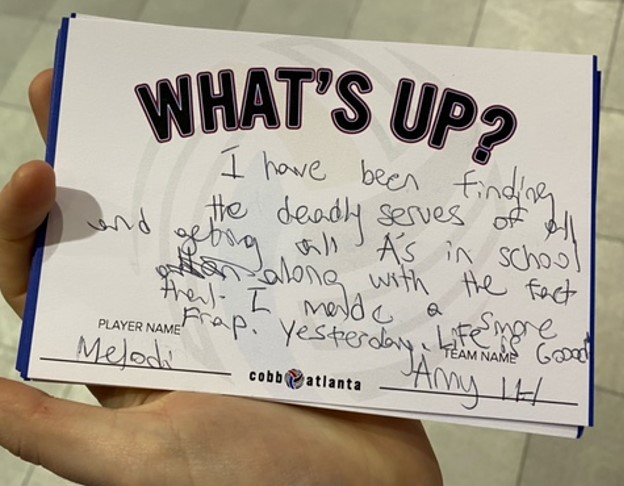 WHAT'S UP?
I have been finding
the deadly serves of all
and getting all A's in school
along with the fact
that I made a Smore
Frap. yesterday. Life is Good
PLAYER NAME
Melodi
TEAM NAME
Amy
cobb atlanta